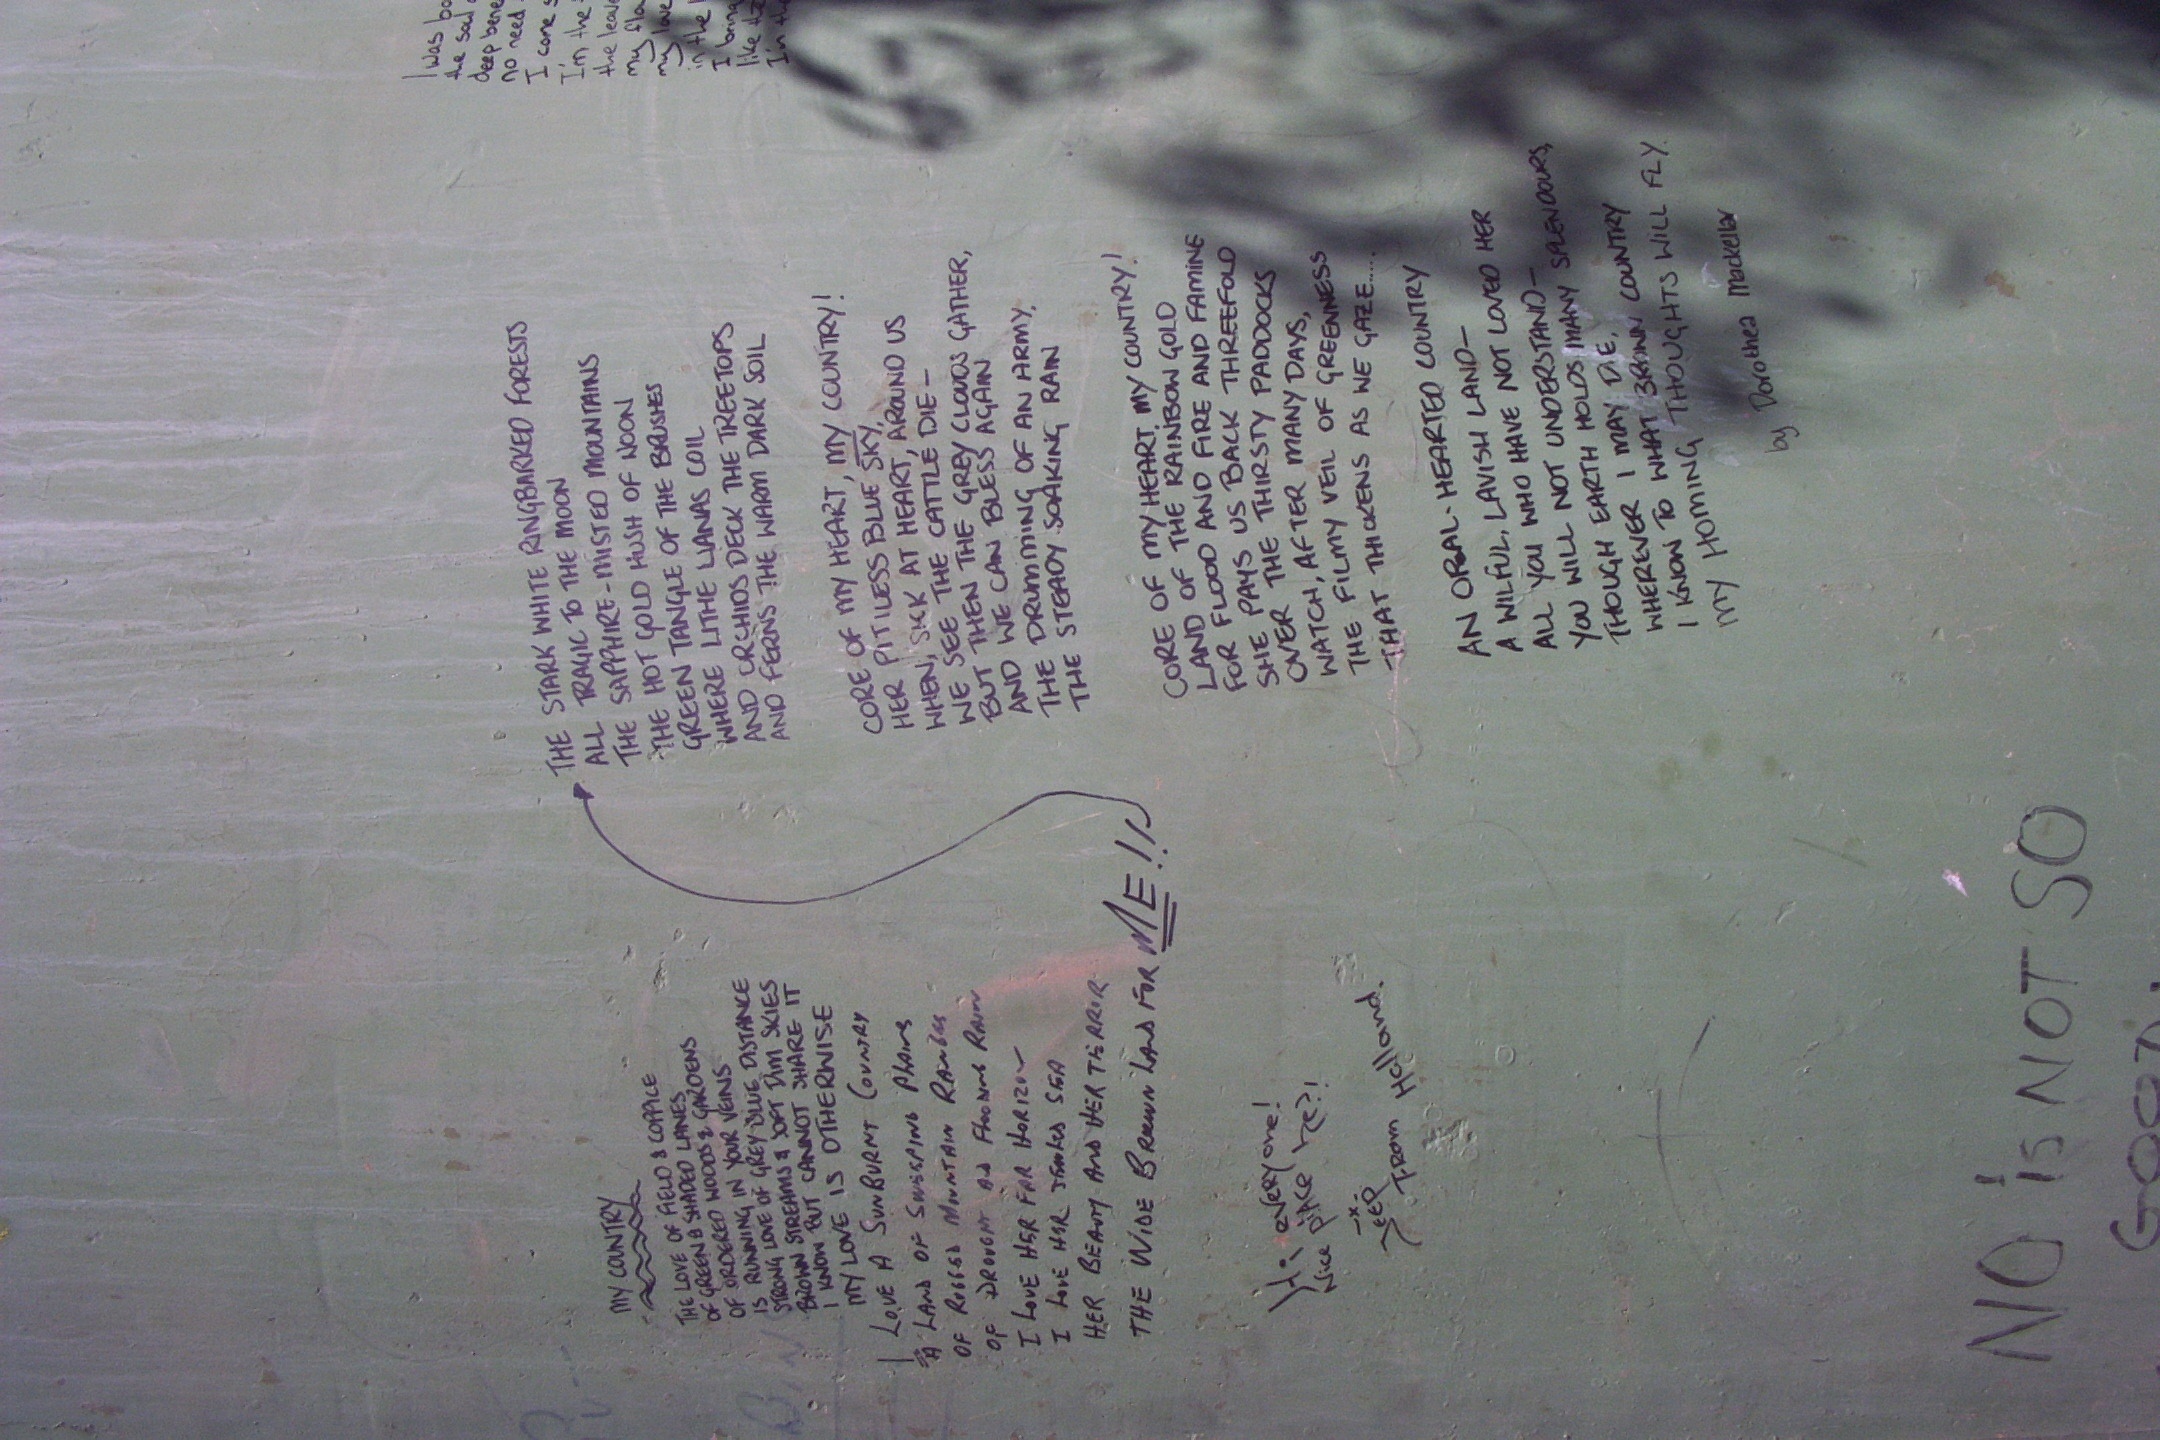 MY COUNTRY
THE LOVE OF FIELD & COPPICE
OF GREEN & SHADED LANES
OF ORDERED WOODS & GARDENS
IS RUNNING IN YOUR VEINS
STRONG LOVE OF GREY-BLUE DISTANCE
BROWN STREAMS & SOFT DIM SKIES
I KNOW BUT CANNOT SHARE IT
MY LOVE IS OTHERWISE
I LOVE A SUNBURNT COUNTRY
A LAND OF SWEEPING PLAINS
OF RUGGED MOUNTAIN RANGES
OF DROUGHT AND FLOODING RAIN
I LOVE HER FAR HORIZON
I LOVE HER JEWELED SEA
HER BEAUTY AND HER TERROR
THE WIDE BROWN LAND FOR ME!!!
THE STARK WHITE RINGBARKED FORESTS
ALL TRAGIC TO THE MOON
THE SAPPHIRE-MISTED MOUNTAINS
THE HOT GOLD HUSH OF NOON
GREEN TANGLE OF THE BRUSHES
WHERE LITHE LIANAS COIL
AND ORCHIDS DECK THE TREETOPS
AND FERNS THE WARM DARK SOIL
CORE OF MY HEART, MY COUNTRY!
HER PITILESS BLUE SKY,
WHEN, SICK AT HEART, AROUND US
WE SEE THE CATTLE DIE -
BUT THEN THE GREY CLOUDS GATHER,
AND WE CAN BLESS AGAIN
THE DRUMMING OF AN ARMY,
THE STEADY SOAKING RAIN
CORE OF MY HEART, MY COUNTRY!
LAND OF THE RAINBOW GOLD
FOR FLOOD AND FIRE AND FAMINE
SHE PAYS US BACK THREEFOLD
OVER THE THIRSTY PADDOCKS
WATCH, AFTER MANY DAYS,
THE FILMY VEIL OF GREENNESS
THAT THICKENS AS WE GAZE.....
AN OPAL-HEARTED COUNTRY
A WILFUL, LAVISH LAND-
ALL YOU WHO HAVE NOT LOVED HER
YOU WILL NOT UNDERSTAND-
THOUGH EARTH HOLDS MANY SPLENDOURS,
WHEREVER I MAY DIE,
I KNOW TO WHAT BROWN COUNTRY
MY HOMING THOUGHTS WILL FLY.
by Dorothea Mackellar
Hi everyone!
Nice place he?!
-x-
From Holland.
NO IS NOT SO
GOOD!
I was
the soul
deep
no need
I came
I'm the
the
my
my love
in the
I bring
like
I'm